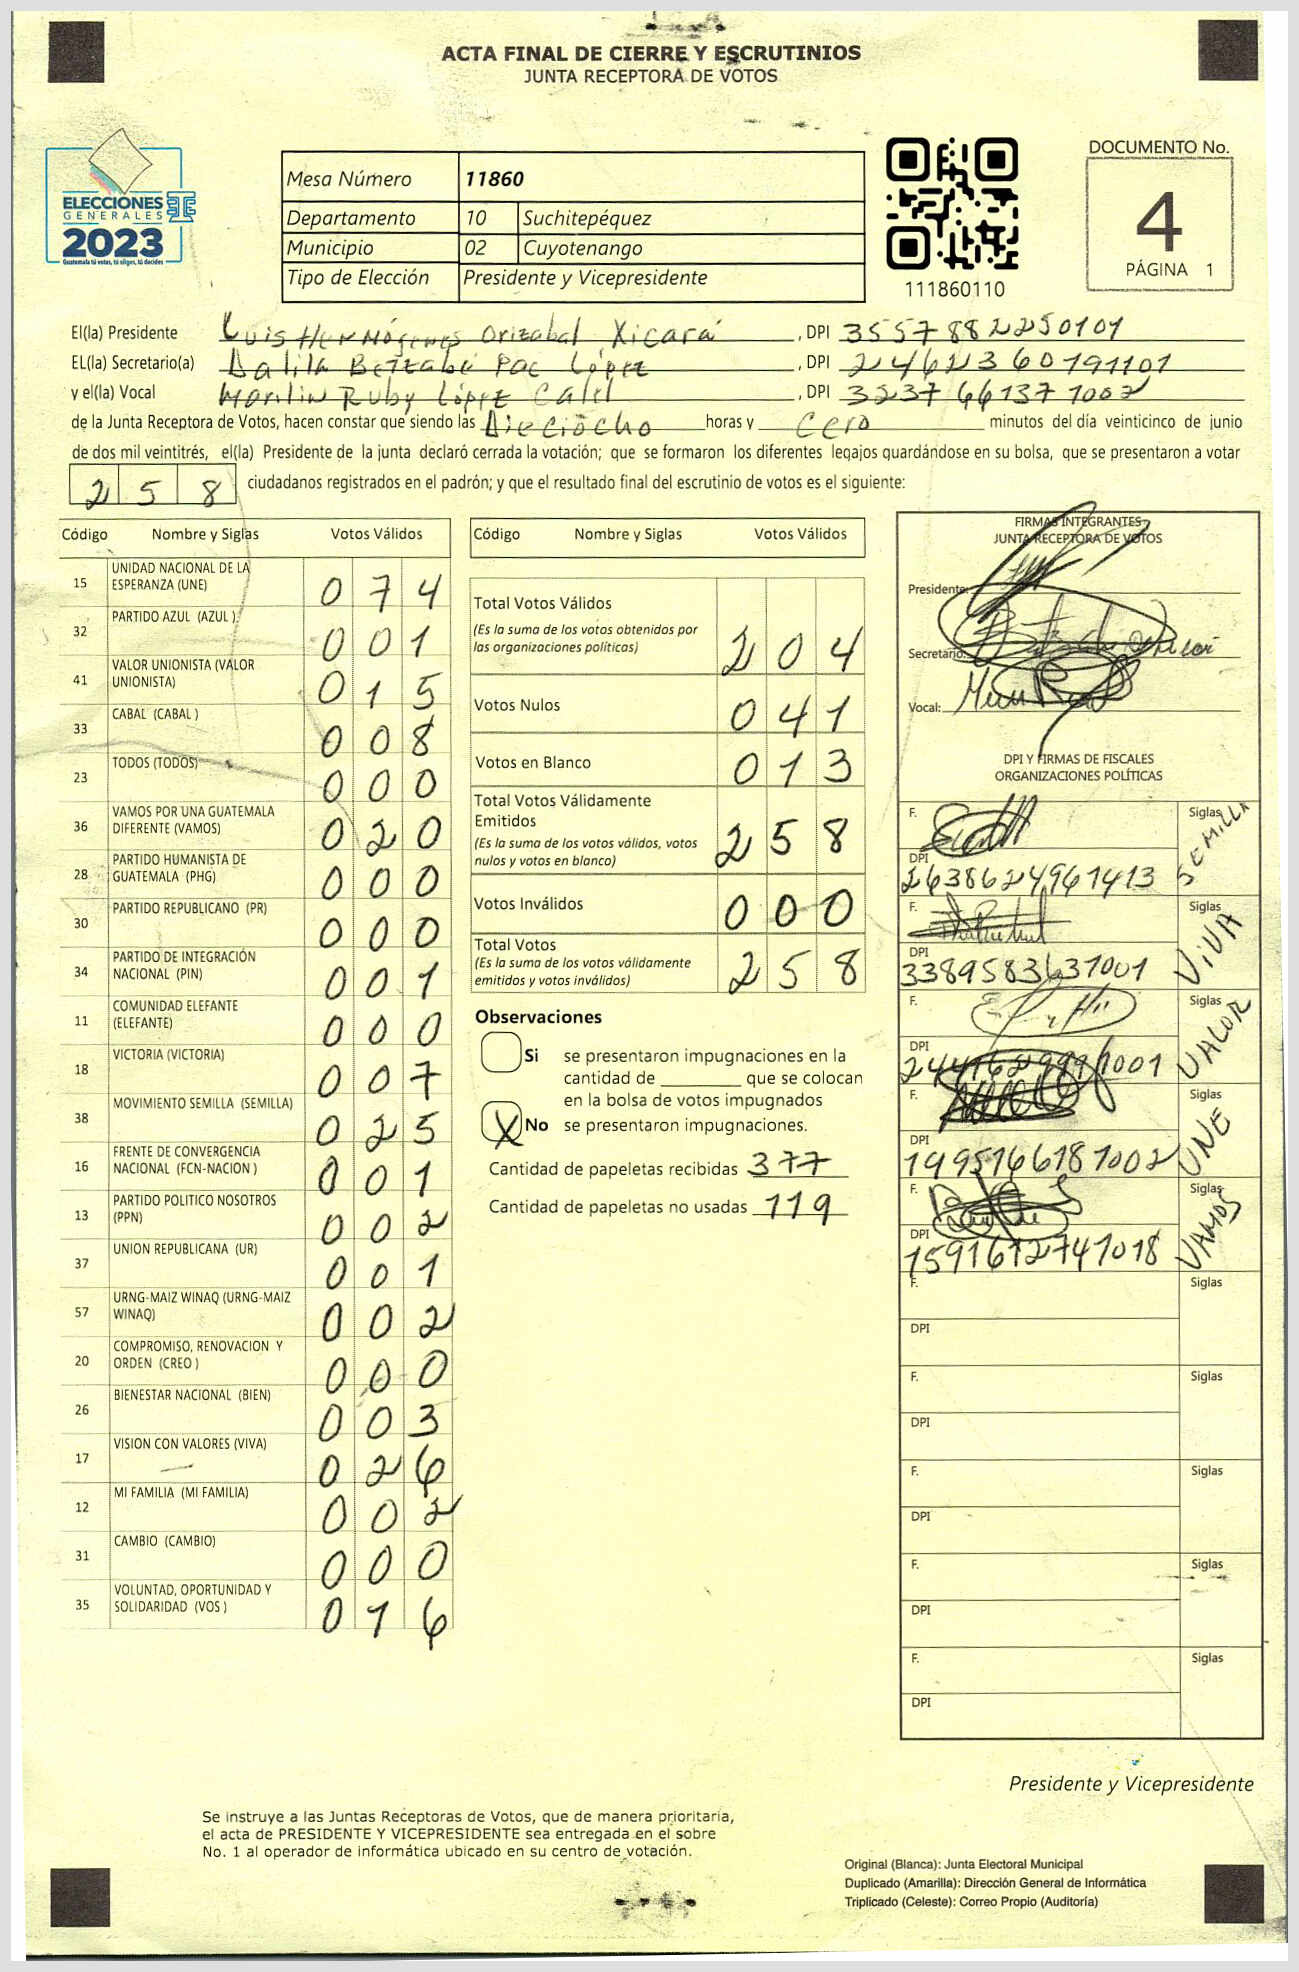 ACTA FINAL DE CIERRE Y ESCRUTINIOS
JUNTA RECEPTORA DE VOTOS
ELECCIONES
GENERALES
2023
Guatemala tú votas, tú eliges, tú decides
Mesa Número 11860
Departamento 10 Suchitepéquez
Municipio 02 Cuyotenango
Tipo de Elección Presidente y Vicepresidente
111860110
DOCUMENTO No.
4
PÁGINA 1
El(la) Presidente Luis Hermógenes Orizabal Xicará , DPI 3557882250101
EL(la) Secretario(a) Dalila Betzabé Pac López , DPI 2462360791101
y el(la) Vocal Marilin Ruby López Calel , DPI 3237661371002
de la Junta Receptora de Votos, hacen constar que siendo las Dieciocho horas y cero minutos del día veinticinco de junio
de dos mil veintitrés, el(la) Presidente de la junta declaró cerrada la votación; que se formaron los diferentes legajos guardándose en su bolsa, que se presentaron a votar
258 ciudadanos registrados en el padrón; y que el resultado final del escrutinio de votos es el siguiente:
Código Nombre y Siglas Votos Válidos
15 UNIDAD NACIONAL DE LA ESPERANZA (UNE) 074
32 PARTIDO AZUL (AZUL ) 001
41 VALOR UNIONISTA (VALOR UNIONISTA) 015
33 CABAL (CABAL ) 008
23 TODOS (TODOS) 000
36 VAMOS POR UNA GUATEMALA DIFERENTE (VAMOS) 020
28 PARTIDO HUMANISTA DE GUATEMALA (PHG) 000
30 PARTIDO REPUBLICANO (PR) 000
34 PARTIDO DE INTEGRACIÓN NACIONAL (PIN) 001
11 COMUNIDAD ELEFANTE (ELEFANTE) 000
18 VICTORIA (VICTORIA) 007
38 MOVIMIENTO SEMILLA (SEMILLA) 025
16 FRENTE DE CONVERGENCIA NACIONAL (FCN-NACION ) 001
13 PARTIDO POLITICO NOSOTROS (PPN) 002
37 UNION REPUBLICANA (UR) 001
57 URNG-MAIZ WINAQ (URNG-MAIZ WINAQ) 002
20 COMPROMISO, RENOVACION Y ORDEN (CREO ) 000
26 BIENESTAR NACIONAL (BIEN) 003
17 VISION CON VALORES (VIVA) 026
12 MI FAMILIA (MI FAMILIA) 002
31 CAMBIO (CAMBIO) 000
35 VOLUNTAD, OPORTUNIDAD Y SOLIDARIDAD (VOS ) 016
Código Nombre y Siglas Votos Válidos
Total Votos Válidos 204
(Es la suma de los votos obtenidos por
las organizaciones políticas)
Votos Nulos 041
Votos en Blanco 013
Total Votos Válidamente
Emitidos 258
(Es la suma de los votos válidos, votos
nulos y votos en blanco)
Votos Inválidos 000
Total Votos 258
(Es la suma de los votos válidamente
emitidos y votos inválidos)
Observaciones
Si se presentaron impugnaciones en la
cantidad de ________ que se colocan
en la bolsa de votos impugnados
X No se presentaron impugnaciones.
Cantidad de papeletas recibidas 377
Cantidad de papeletas no usadas 119
FIRMAS INTEGRANTES
JUNTA RECEPTORA DE VOTOS
Presidente:
Secretario:
Vocal:
DPI Y FIRMAS DE FISCALES
ORGANIZACIONES POLÍTICAS
F. Siglas SEMILLA
DPI 2638624961413
F. Siglas VIVA
DPI 3389583631001
F. Siglas VALOR
DPI
F. Siglas UNE
DPI 1495166181002
F. Siglas VAMOS
DPI 1591612741018
F. Siglas
DPI
F. Siglas
DPI
F. Siglas
DPI
F. Siglas
DPI
F. Siglas
DPI
Presidente y Vicepresidente
Se instruye a las Juntas Receptoras de Votos, que de manera prioritaria,
el acta de PRESIDENTE Y VICEPRESIDENTE sea entregada en el sobre
No. 1 al operador de informática ubicado en su centro de votación.
Original (Blanca): Junta Electoral Municipal
Duplicado (Amarilla): Dirección General de Informática
Triplicado (Celeste): Correo Propio (Auditoría)